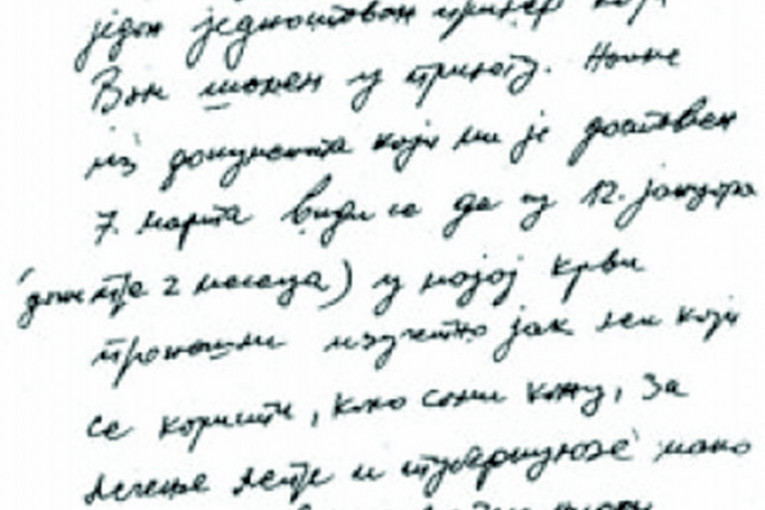 један једноставан пример који
Вам шаљем у прилогу. Наиме
из документа који ми је достављен
7. марта види се да су 12. јануара
2 месеца) у мојој крви
пронашли изузетно јак лек који
се користи, како сами кажу, за
лечење лепре и туберкулозе иако